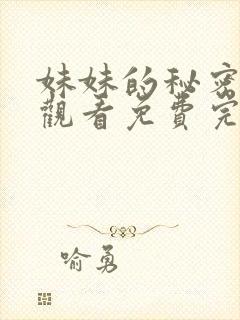 妹妹的秘密
觀看免費完
喻勇